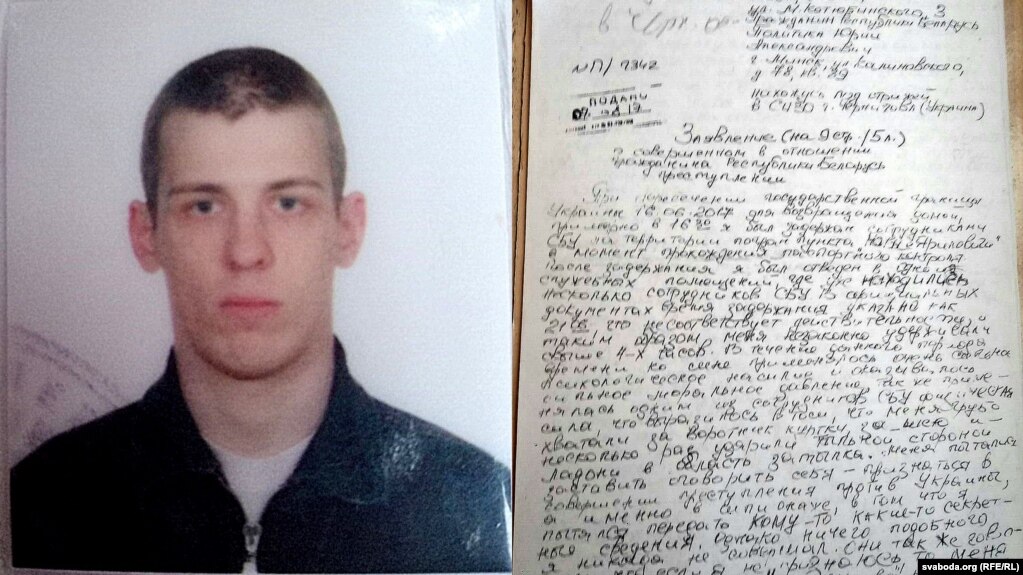 ул. М. Котюбинского, 3
Гражданин Республики Беларусь
Политика Юрий
Александрович
г. Минск, ул. Калиновского,
д 78, кв.
№П/7342
нахожусь под стражей
в СИЗО г. Чернигова (Украина)
ПОДАНО
Заявление (на 9 стр./5л.)
о совершенном в отношении
гражданина Республики Беларусь
преступлении
При пересечении государственной границы
Украины 16.06.2017 для возвращения домой,
примерно в 16 30 я был задержан сотрудниками
СБУ на территории погран пункта
в момент прохождения паспортного контроля
после задержания я был отведен в одно из
служебных помещений, где уже находились
несколько сотрудников СБУ. В официальных
документах время задержания указано как
21 что не соответствует действительности и
таким образом меня незаконно удерживали
свыше 4-х часов. В течение данного периода
времени ко мне применялось очень
психологическое насилие и оказывалось
сильное моральное давление, так же приме-
нялась одним из сотрудников СБУ физическая
сила, что выразилось в том что меня грубо
хватали за воротник куртки, за шею и
несколько раз ударили тыльной стороной
ладони в область затылка. Меня пытались
заставить оговорить себя - признаться в
совершении преступления против Украины,
а именно в шпионаже, в том что я
пытался передать кому-то, какие-то секрет-
ные сведения, однако ничего подобного
я никогда не совершал. Они так же гово-
если я не признаюсь, то меня
svaboda.org (RFE/RL)